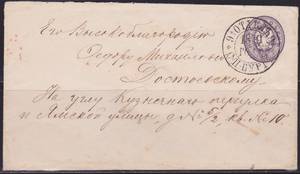 Его Высокоблагородію
Ѳедору Михайловичу
Достоевскому
На углу Кузнечнаго переулка
и Ямской улицы, д № 5/2, кв. № 10.